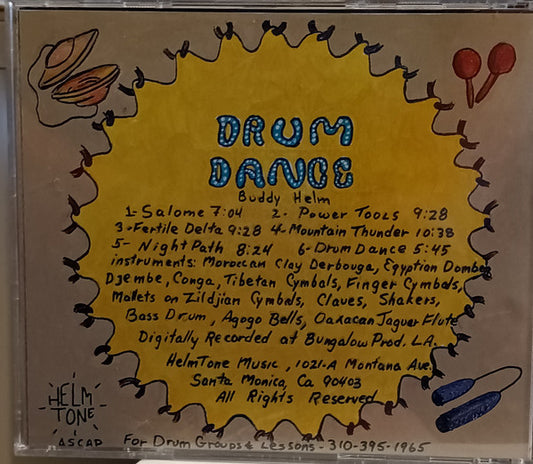 DRUM
DANCE
Buddy Helm
1- Salome 7:04 2- Power Tools 9:28
3- Fertile Delta 9:28 4- Mountain Thunder 10:38
5- Night Path 8:24 6- Drum Dance 5:45
instruments: Moroccan Clay Derbouga, Egyptian Dombec
Djembe, Conga, Tibetan Cymbals, Finger Cymbals,
Mallets on Zildjian Cymbals, Claves, Shakers,
Bass Drum, Agogo Bells, Oaxacan Jaguer Flute
Digitally Recorded at Bungalow Prod. L.A.
HelmTone Music, 1021-A Montana Ave,
Santa Monica, Ca 90403
All Rights Reserved
HELM
TONE
ASCAP
For Drum Groups & Lessons - 310-395-1965